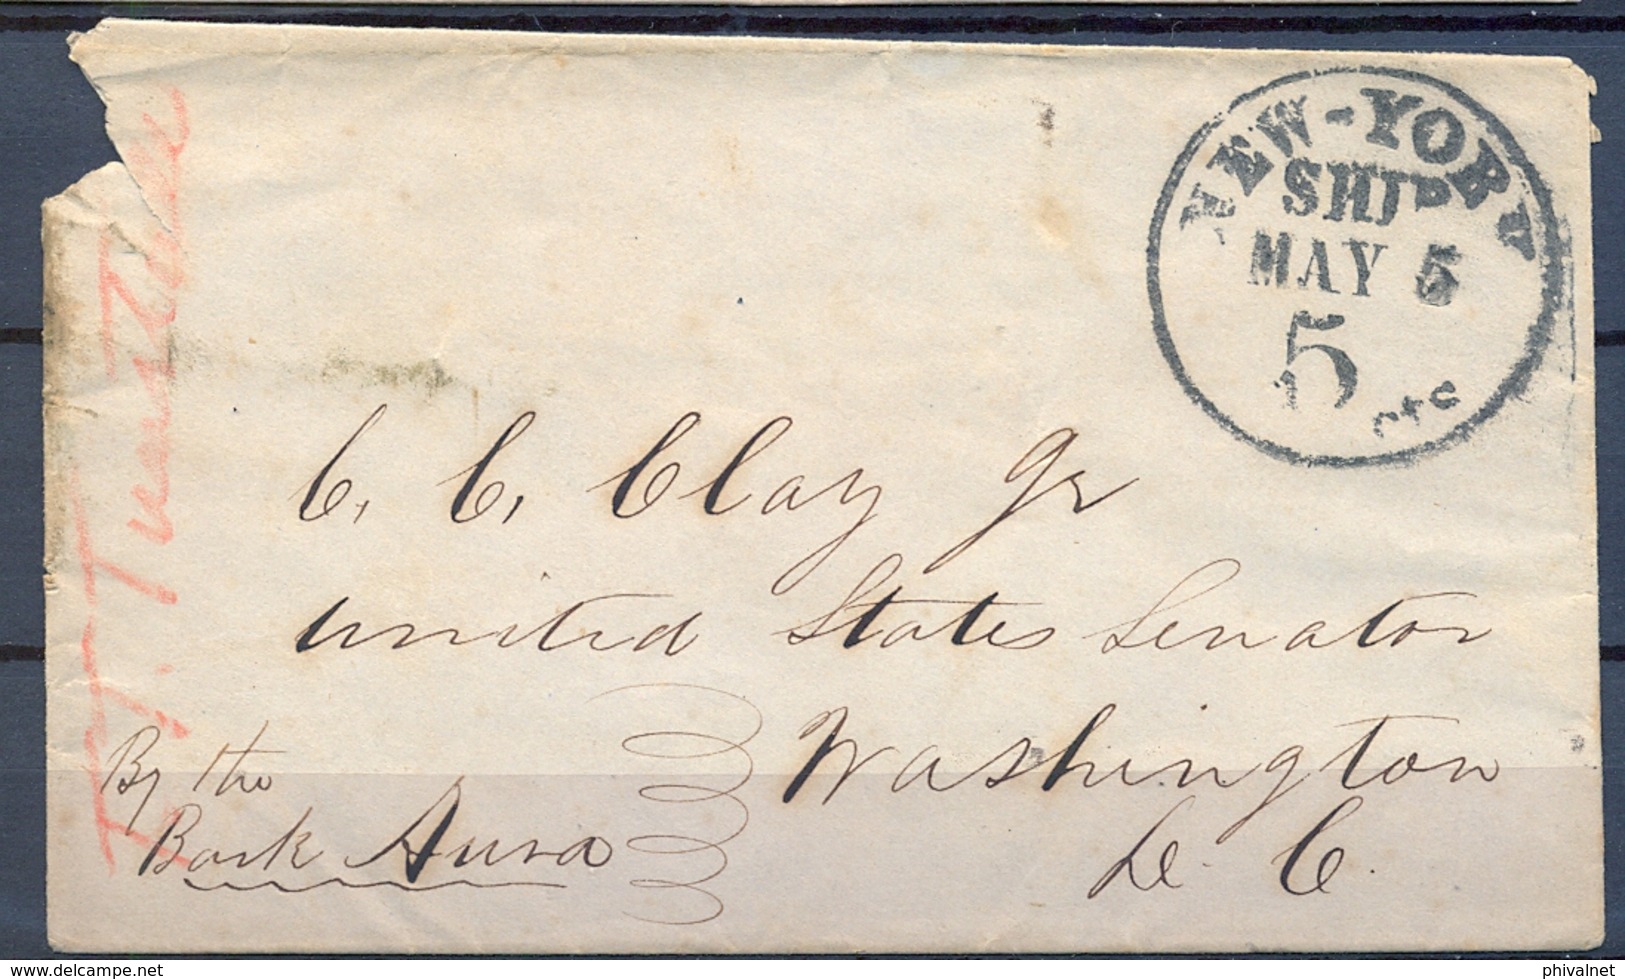 NEW-YORK
SHIP
MAY 5
5 cts
C. C. Clay Jr
United States Senator
Washington
D. C.
By the
Bark Aura
T. Tunstall
delcampe.net
phivalnet